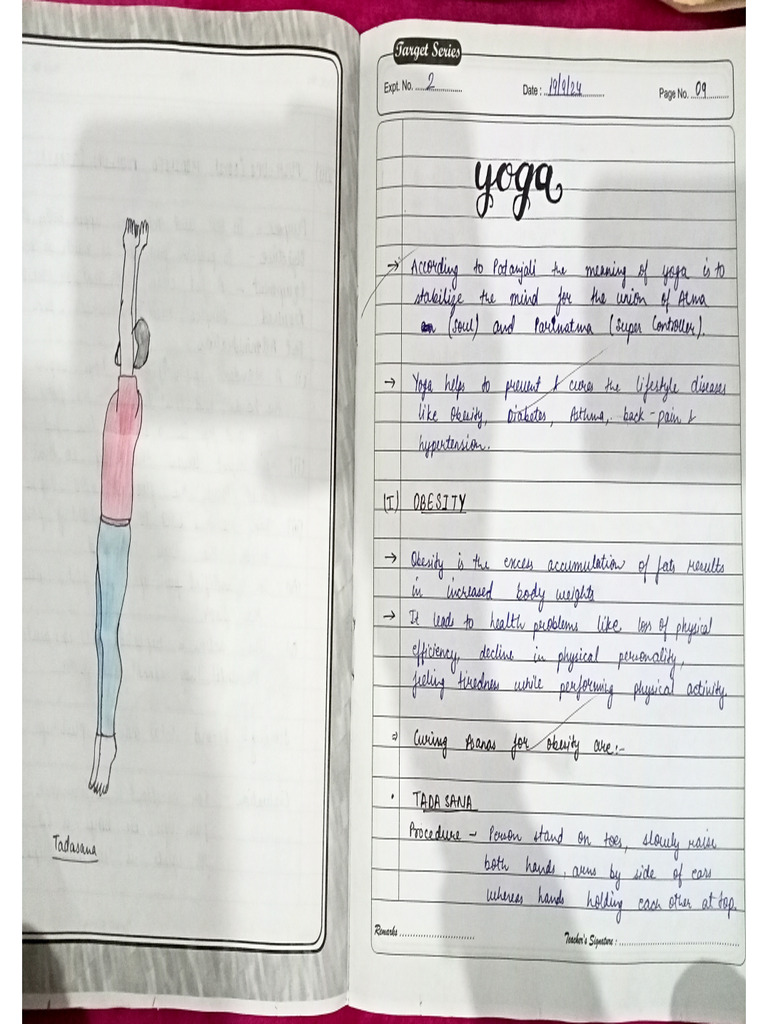 Tadasana
Target Series
Expt. No. 2 Date : 19/9/24 Page No. 09
yoga
→ According to Patanjali the meaning of yoga is to
stabilize the mind for the union of Atma
(Soul) and Parmatma (Super Controller).
→ Yoga helps to prevent & cures the lifestyle diseases
like Obesity, Diabetes, Asthma, back-pain &
hypertension.
(I) OBESITY
→ Obesity is the excess accumulation of fats results
in increased body weights
→ It leads to health problems like loss of physical
efficiency, decline in physical personality,
feeling tiredness while performing physical activity.
⇒ Curing Asanas for obesity are:-
• TADASANA
Procedure - Person stand on toes, slowly raise
both hands, arms by side of ears
whereas hands holding each other at top.
Remarks Teacher's Signature :